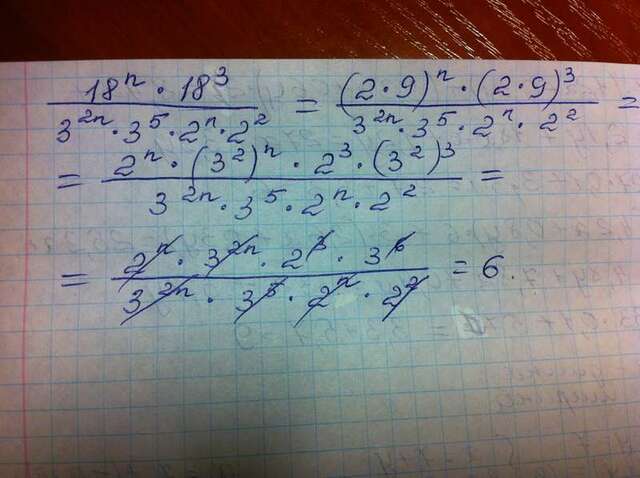 18ⁿ · 18³ / 3²ⁿ · 3⁵ · 2ⁿ · 2² = (2 · 9)ⁿ · (2 · 9)³ / 3²ⁿ · 3⁵ · 2ⁿ · 2² =
= 2ⁿ · (3²)ⁿ · 2³ · (3²)³ / 3²ⁿ · 3⁵ · 2ⁿ · 2² =
= 2ⁿ · 3²ⁿ · 2³ · 3⁶ / 3²ⁿ · 3⁵ · 2ⁿ · 2² = 6.